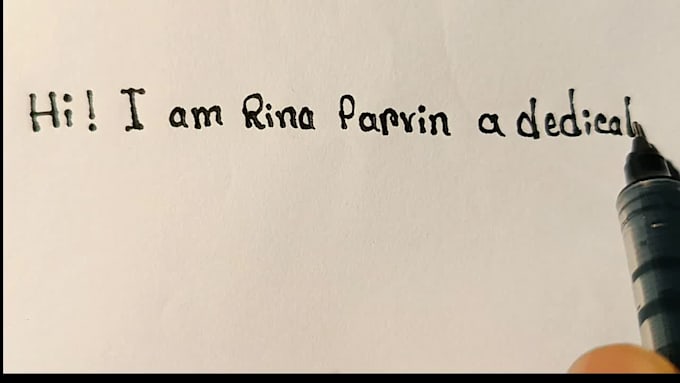 Hi! I am Rina Parvin a dedical